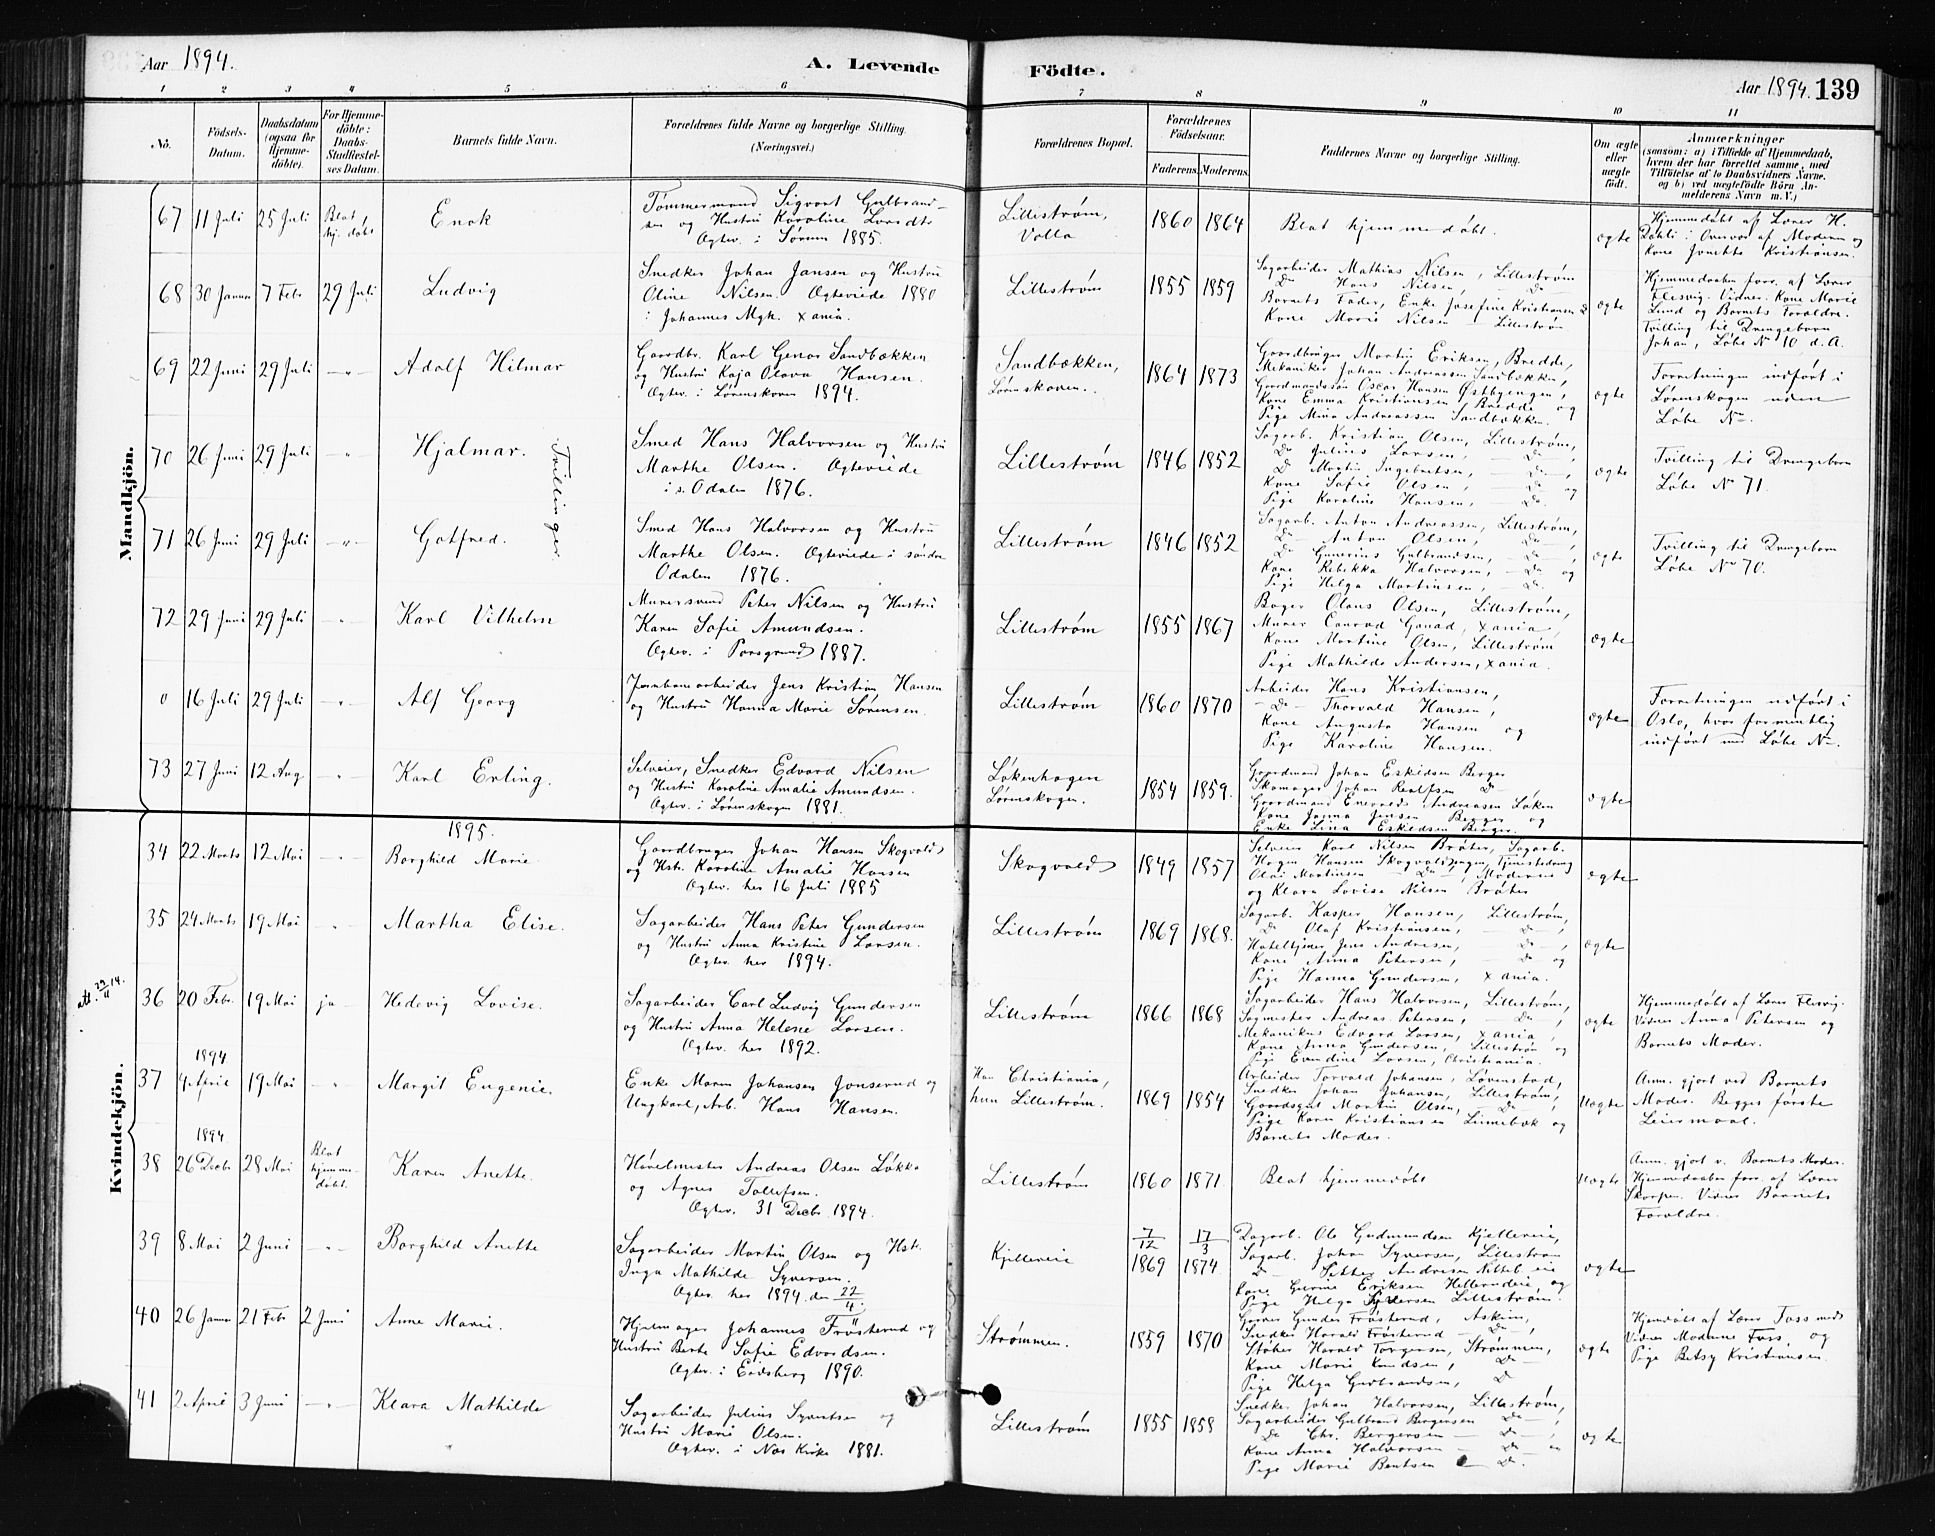 Aar 1894.
A. Levende
Födte.
Aar 1894. 139
1 2 3 4 5 6 7 8 9 10 11
No.
Födsels-Datum.
Daabsdatum (ogsaa for Hjemmedöbte).
For Hjemmedöbte: Daabs-Stadfæstelses Datum.
Barnets fulde Navn.
Forældrenes fulde Navne og borgerlige Stilling. (Næringsvei.)
Forældrenes Bopæl.
Forældrenes Födselsaar.
Faderens. Moderens.
Faddernes Navne og borgerlige Stilling.
Om ægte eller uægte födt.
Anmærkninger
(saasom: a) i Tilfælde af Hjemmedaab, hvem der har forrettet samme, med Tilföielse af to Daabsvidners Navne. og b) ved uægtefödte Börn Anmelderens Navn m. V.)
Mandkjön.
67 11 Juli 25 Juli Blot hj. døbt Enok
Tømmermand Sigvart Gulbrandsen og Hustru Karoline
Ægtev. i Sørum 1885.
Lillestrøm, Volla
1860 1864
Blot hjemmedøbt.
ægte
Hjemmedøbt af Lærer H. Dahli i Overvær af Moderen og Kone Jonette Kristiansen.
68 30 Januar 7 Febr 29 Juli Ludvig
Snedker Johan Jansen og Hustru
Oline Nilsen. Ægteviede 1880
i Johannes Mgh. Xania.
Lillestrøm
1855 1859
Sagarbeider Mathias Nilsen, Lillestrøm
Do Hans Nilsen, Do
Barnets Fader, Enke Josefine Kristiansen
Kone Marie Nilsen Lillestrøm
ægte
Hjemmedaaben forr. af Lærer
Flesvig. Vidner. Kone Marie
Lund og Barnets Forældre.
Tvilling til Drengebarn
Johan, Løbe No 10 d. A.
69 22 Juni 29 Juli -"- Adolf Hilmar
Gaardbr. Karl Sandbækken
og Hustru Kaja Olava Hansen.
Ægtev. i Lørenskoven 1894.
Sandbækken, Lørenskoven.
1864 1873
Gaardbruger Martin Eriksen, Bredde,
Mekaniker Johan Andreassen Sandbækken,
Gaardmandssøn Oscar Hansen Østbyengen,
Kone Emma Kristiansen, Bredde og
Pige Mina Andreassen Sandbækken.
ægte
Forretningen indført i
Lørenskogen uden
Løbe No.
70 26 Juni 29 Juli -"- Hjalmar.
Tvillinger
Smed Hans Halvorsen og Hustru
Marthe Olsen. Ægteviede
i s. Odalen 1876.
Lillestrøm
1846 1852
Sagarb. Kristian Olsen, Lillestrøm,
Do Julius Larsen, Do,
Do Martin Ingebretsen, Do,
Kone Sofie Olsen, Do og
Pige Karoline Hansen, Do.
ægte
Tvilling til Drengebarn
Løbe No 71.
71 26 Juni 29 Juli -"- Gotfred.
Smed Hans Halvorsen og Hustru
Marthe Olsen. Ægteviede i søndre
Odalen 1876.
Lillestrøm
1846 1852
Sagarb. Anton Andreassen, Lillestrøm,
Do Anton Olsen, Do,
Do Gunerius Gulbrandsen, Do,
Kone Rebekka Halvorsen, Do og
Pige Helga Martinsen, Do.
ægte
Tvilling til Drengebarn
Løbe No 70.
72 29 Juni 29 Juli -"- Karl Vilhelm
Murersvend Peter Nilsen og Hustru
Karen Sofie Amundsen.
Ægtev. i Porsgrund 1887.
Lillestrøm
1855 1867
Bager Olaus Olsen, Lillestrøm,
Murer Conrad, Xania,
Kone Martine Olsen, Lillestrøm
Pige Mathilde Andersen, Xania.
ægte
0 16 Juli 29 Juli -"- Alf Georg
Jernbanearbeider Jens Kristian Hansen
og Hustru Hanna Marie Sørensen.
Lillestrøm
1860 1870
Arbeider Hans Kristiansen,
Do Thorvald Hansen,
Kone Augusta Hansen og
Pige Karoline Hansen.
ægte
Forretningen udført i
Oslo, hvor formentlig
indført med Løbe No.
73 27 Juni 12 Aug -"- Karl Erling.
Selveier, Snedker Edvard Nilsen
og Hustru Karoline Amalie Amundsen.
Ægtev. i Lørenskogen 1881.
Løkenhagen
Lørenskogen.
1854 1859.
Gaardmand Johan Eskildsen Berger
Skomager Johan Do
Gaardmand Andreasen Løken
Kone Janna Jensen Berger og
Enke Lina Eskildsen Berger.
ægte
Kvindekjön.
1895.
34 22 Marts 12 Mai -"- Borghild Marie.
Gaardbruger Johan Hansen Skogvold
og Hst. Karoline Amalie Hansen
Ægtev. her 16 Juli 1885
Skogvold
1849 1857
Selveier Karl Nilsen Bråten, Sagarb.
Hagen Hansen, Tjenestedreng
Olai Martinsen Do, Moderen
og Klara Lovise Nilsen Bråten
ægte
35 24 Marts 19 Mai -"- Martha Elise.
Sagarbeider Hans Peter Gundersen
og Hustru Anna Kristine Larsen.
Ægtev. her 1894.
Lillestrøm
1869 1868.
Sagarb. Kasper Hansen, Lillestrøm,
Do Olaf Kristiansen, Do,
Hoteltjener Jens Andresen, Do,
Kone Anna Petersen, Do og
Pige Hanna Gundersen, Xania.
ægte
att. 23/11 14.
36 20 Febr. 19 Mai ja Hedevig Lovise.
Sagarbeider Carl Ludvig Gundersen
og Hustru Anna Helene Larsen.
Ægtev. her 1892.
Lillestrøm
1866 1868
Sagarbeider Hans Halvorsen, Lillestrøm,
Sagmester Andreas Petersen, Do,
Mekanikus Edvard Larsen, Xania,
Kone Anna Gundersen, Lillestrøm og
Pige Evendine Larsen, Christiania.
ægte
Hjemmedøbt af Lærer Flesvig.
Vidner Anna Petersen og
Barnets Moder.
1894
37 4 April 19 Mai -"- Margit Eugenie.
Enke Maren Johansen Jonserud og
Ungkarl, Arb. Hans Hansen.
Han Christiania,
hun Lillestrøm.
1869 1854
Arbeider Torvald Johansen, Lørenstad,
Snedker Johan Johansen, Lillestrøm,
Gaardsgut Martin Olsen, Do,
Pige Karen Kristiansen Linnebæk og
Barnets Moder.
Uægte
Anm. gjort ved Barnets
Moder. Begges første
Leiermaal.
1894.
38 26 Decbr 28 Mai Blot hjemmedøbt. Karen Anette.
Høvelmester Andreas Olsen Løkka
og Agnes Tollefsen.
Ægtev. 31 Decbr 1894.
Lillestrøm
1860 1871.
Blot hjemmedøbt
Uægte
Anm. gjort v. Barnets Moder.
Hjemmedaaben forr. af Lærer
Skarpen. Vidner Barnets
Forældre.
39 8 Mai 2 Juni -"- Borghild Anette
Sagarbeider Martin Olsen og Hst.
Inga Mathilde Syversen.
Ægtev. her 1894. den 22/4.
Kjelleveie
7/12 1869 17/3 1874
Dagarb. Ole Gudmundsen Kjelleveie,
Sagarb. Johan Syversen, Lillestrøm
Do Petter Andresen
Kone Gurine Eriksen og
Pige Helga Syversen Lillestrøm.
ægte
40 26 Januar 21 Febr 2 Juni Anne Marie.
Hjulmager Johannes Frøsterud og
Hustru Berte Sofie Edvardsen.
Ægtev. i Eidsberg 1890.
Strømmen.
1859 1870
Gunder Frøsterud, Askim,
Snedker Harald Frøsterud Do,
Støber Harald Torgersen, Strømmen,
Kone Marie Knudsen, Do
Pige Helga Gulbrandsen, Do
ægte
Hjemdøbt af Lærer Foss med
Vidner Madame Foss og
Pige Betsy Kristiansen.
41 2 April 3 Juni -"- Klara Mathilde
Sagarbeider Julius Syvertsen og
Hustru Marie Olsen.
Ægtev. i Næs Kirke 1881.
Lillestrøm
1855 1858
Snedker Johan Halvorsen, Lillestrøm,
Sagarbeider Gulbrand Bergersen Do,
Do Chr. Bergersen Do,
Kone Anna Halvorsen Do
Pige Marie Bentsen Do.
ægte